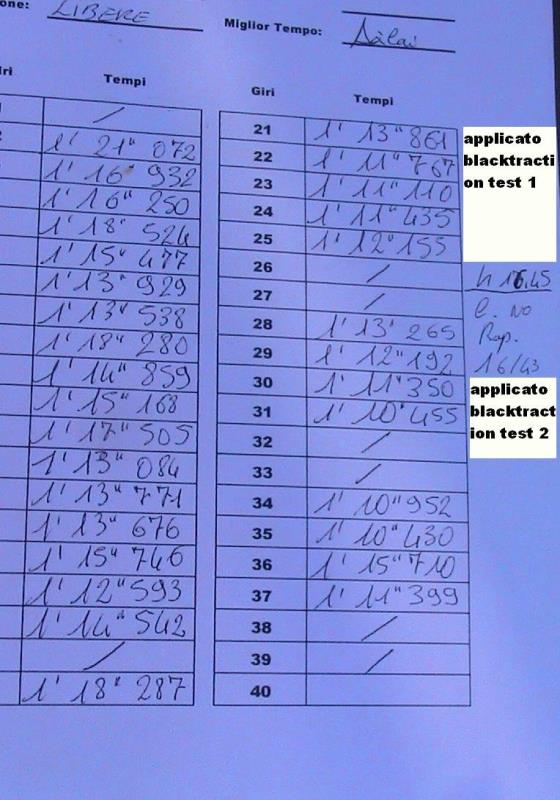 one: LIBERE
Miglior Tempo:
iri Tempi
/
1' 21" 072
1' 16" 932
1' 16" 250
1' 18" 524
1' 15" 477
1' 13" 929
1' 13" 538
1' 18" 280
1' 14" 859
1' 15" 168
1' 17" 505
1' 13" 084
1' 13" 771
1' 13" 676
1' 15" 746
1' 12" 593
1' 14" 542
/
1' 18" 287
Giri Tempi
21 1' 13" 861
22 1' 11" 767
23 1' 11" 110
24 1' 11" 435
25 1' 12" 155
26 /
27 /
28 1' 13' 265
29 1' 12" 192
30 1' 11" 350
31 1' 10" 455
32 /
33 /
34 1' 10" 952
35 1' 10" 430
36 1' 15" 710
37 1' 11" 399
38 /
39 /
40
applicato
blacktracti
on test 1
h 16.45
NO
Rap.
16/43
applicato
blacktract
ion test 2